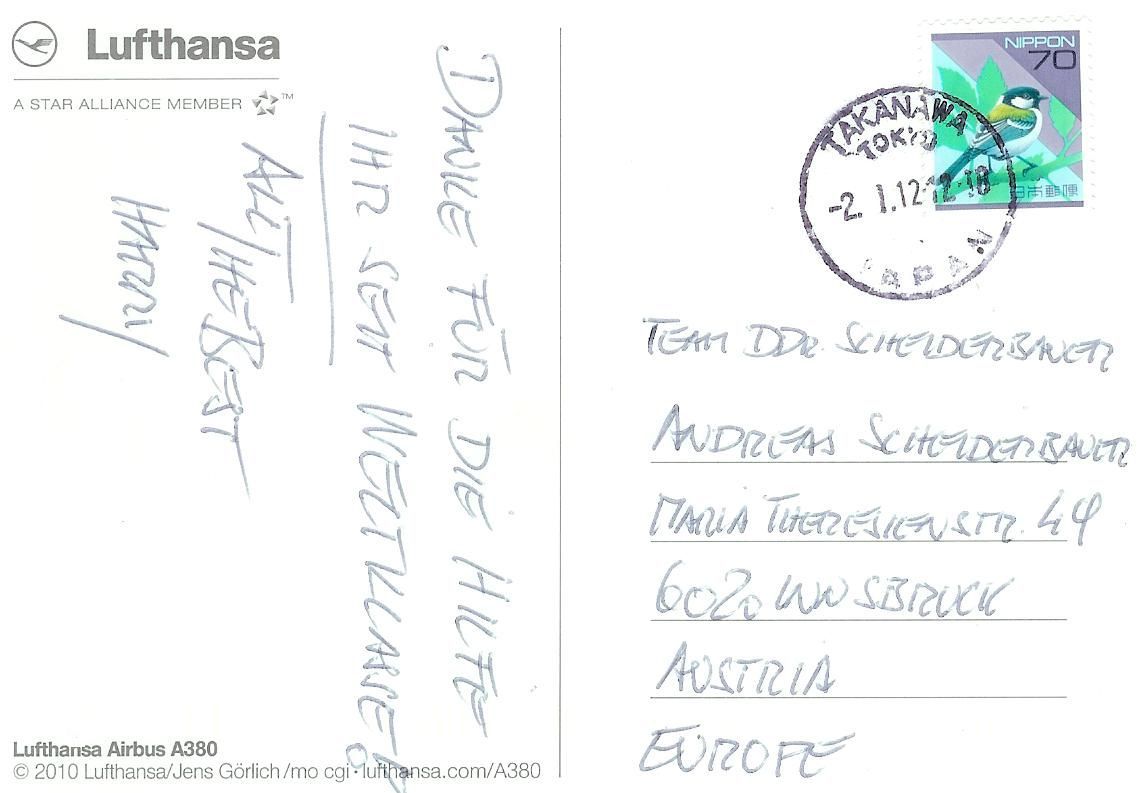 Lufthansa
A STAR ALLIANCE MEMBER ™
DANKE FÜR DIE HILFE
IHR SEIT WELTKLASSE!
ALL THE BEST
HARRY
Lufthansa Airbus A380
© 2010 Lufthansa/Jens Görlich/mo cgi · lufthansa.com/A380
NIPPON
70
日本郵便
TAKANAWA
TOKYO
-2. 1.12.12-18
JAPAN
TEAM DDR. SCHEIDERBAUER
ANDREAS SCHEIDERBAUER
MARIA THERESIENSTR. 49
6020 INNSBRUCK
AUSTRIA
EUROPE